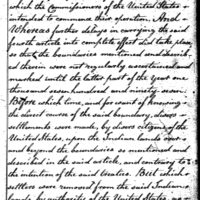 which the Commissioners of the United States
intended to commence their operation. And
Whereas further delays in carrying the said
fourth article into complete effect did take place,
so that the boundaries mentioned and describ-
ed therein were not regularly ascertained and
marked until the latter part of the year one
thousand seven hundred and ninety seven:
Before which time, and for want of knowing
the direct course of the said boundary, divers
settlements were made, by divers citizens of the
United States, upon the Indian lands over
and beyond the boundaries so mentioned and
described in the said article, and contrary to
the intention of the said treaties: But which
settlers were removed from the said Indian
lands by authority of the United States, as